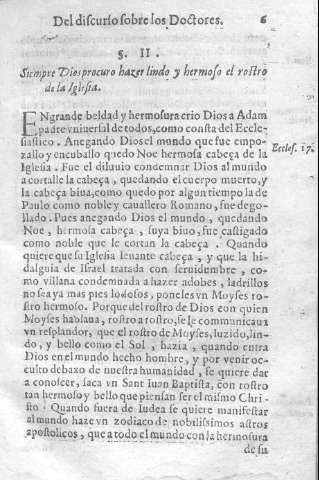 Del discurso sobre los Doctores. 6
§. II.
Siempre Dios procuro hazer lindo y hermoso el rostro
de la Iglesia.
ENgrande beldad y hermosura crio Dios a Adam
padre vniuersal de todos, como consta del Eccle-
siastico. Anegando Dios el mundo que fue empo-
Eccles. 17.
zallo y encuballo quedo Noe hermosa cabeça de la
Iglesia. Fue el diluuio condemnar Dios al mundo
a cortalle la cabeça, quedando el cuerpo muerto, y
la cabeça biua, como quedo por algun tiempo la de
Paulo como noble y cauallero Romano, fue dego-
llado. Pues anegando Dios el mundo, quedando
Noe, hermosa cabeça, suya biuo, fue castigado
como noble que le cortan la cabeça. Quando
quiere que su Iglesia leuante cabeça, y que la hi-
dalguia de Israel tratada con seruidumbre, co-
mo villana condemnada a hazer adobes, ladrillos
no sea ya mas pies lodosos, poneles vn Moyses ro-
stro hermoso. Porque del rostro de Dios con quien
Moyses hablaua, rostro a rostro, se le communicaua
vn resplandor, que el rostro de Moyses, luzido, lin-
do, y bello como el Sol, hazia, quando entra
Dios en el mundo hecho hombre, y por venir oc-
culto debaxo de nuestra humanidad, se quiere dar
a conoscer, saca vn Sant Iuan Baptista, con rostro
tan hermoso y bello que piensan ser el mismo Chri-
sto. Quando fuera de Iudea se quiere manifestar
al mundo haze vn zodiaco de nobilissimos astros
apostolicos, que a todo el mundo con la hermosura
de su